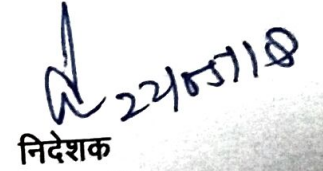 22/05/18
निदेशक